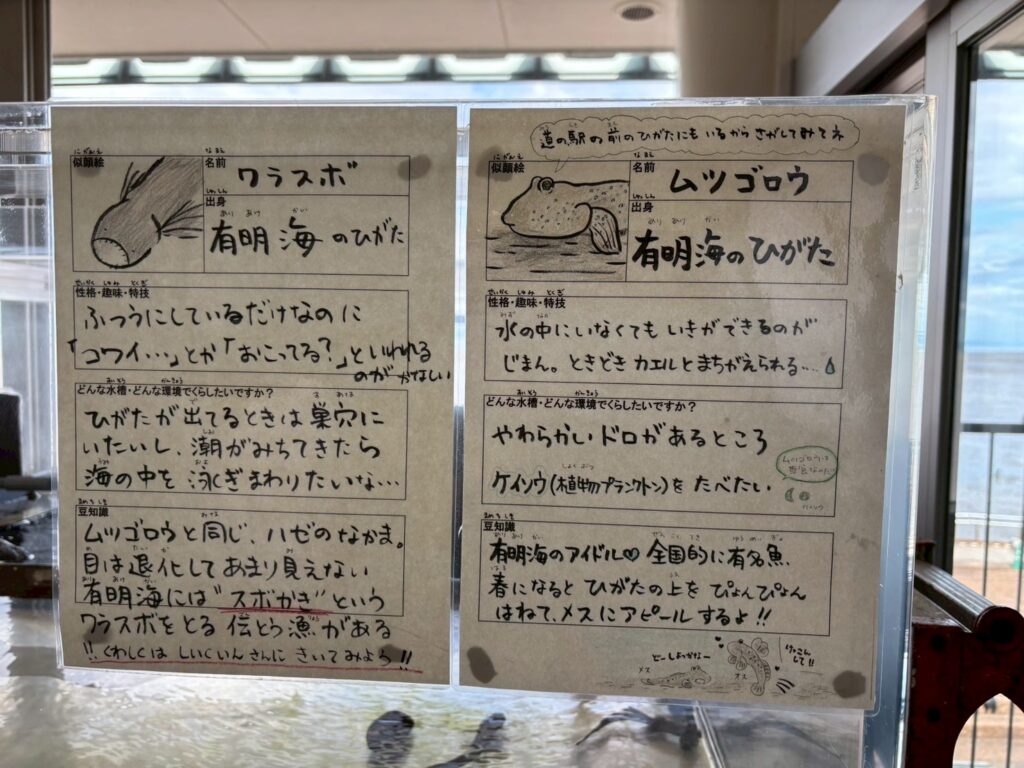 似顔絵
名前
ワラスボ
出身
有明海のひがた
性格・趣味・特技
ふつうにしているだけなのに
「コワイ…」とか「おこってる?」といわれる
のがかなしい
どんな水槽・どんな環境でくらしたいですか?
ひがたが出てるときは巣穴に
いたいし、潮がみちてきたら
海の中を泳ぎまわりたいな…
豆知識
ムツゴロウと同じ、ハゼのなかま。
目は退化してあまり見えない
有明海には"スボかき"という
ワラスボをとる伝とう漁がある
!!くわしくはしいくいんさんにきいてみよう!!
道の駅の前のひがたにもいるからさがしてみてネ
似顔絵
名前
ムツゴロウ
出身
有明海のひがた
性格・趣味・特技
水の中にいなくてもいきができるのが
じまん。ときどきカエルとまちがえられる…
どんな水槽・どんな環境でくらしたいですか?
やわらかいドロがあるところ
ケイソウ(植物プランクトン)をたべたい
豆知識
有明海のアイドル♡全国的に有名魚
春になるとひがたの上をぴょんぴょん
はねて、メスにアピールするよ!!
どーしよっかなー
メス
オス
けっこん
して!!